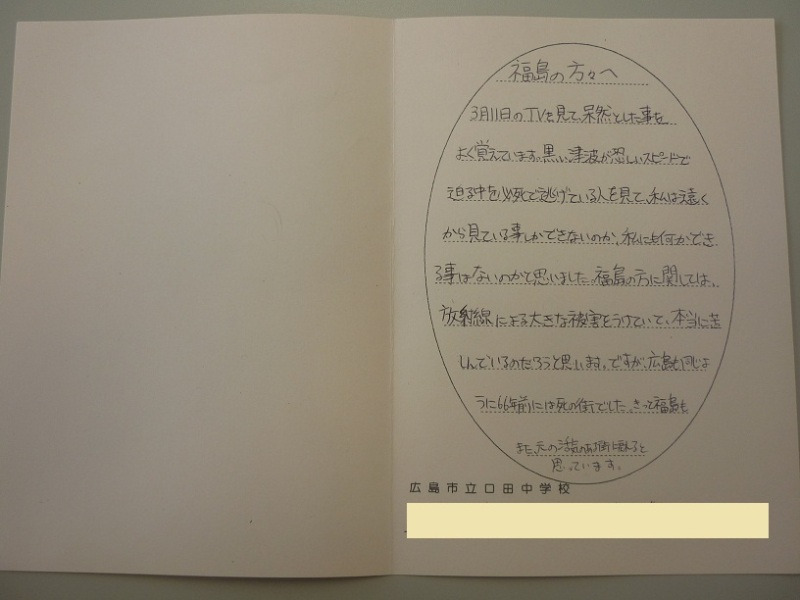 福島の方々へ
3月11日のTVを見て、呆然とした事を
よく覚えています。黒い津波が恐しいスピードで
迫る中を必死で逃げている人を見て、私は遠く
から見ている事しかできないのか、私にも何かでき
る事はないのかと思いました。福島の方に関しては、
放射線による大きな被害をうけていて、本当に苦
しんでいるのだろうと思います。ですが、広島も同じよ
うに66年前には死の街でした。きっと福島も
また、元の活気のある街に戻ると
思っています。
広島市立口田中学校